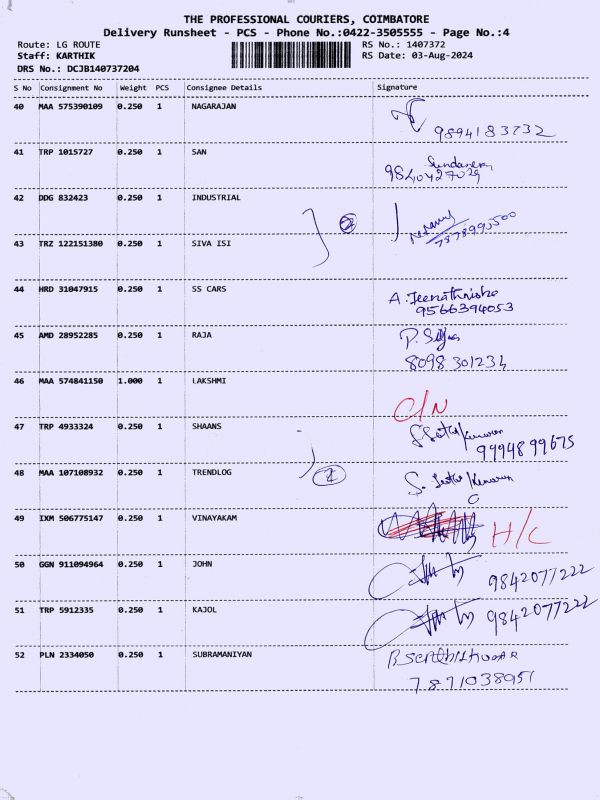 THE PROFESSIONAL COURIERS, COIMBATORE
Delivery Runsheet - PCS - Phone No.:0422-3505555 - Page No.:4
Route: LG ROUTE RS No.: 1407372
Staff: KARTHIK RS Date: 03-Aug-2024
DRS No.: DCJB140737204
S No Consignment No Weight PCS Consignee Details Signature
40 MAA 575390109 0.250 1 NAGARAJAN
9894183732
41 TRP 1015727 0.250 1 SAN
9840427029
42 DDG 832423 0.250 1 INDUSTRIAL
2
7878995500
43 TRZ 122151380 0.250 1 SIVA ISI
44 HRD 31047915 0.250 1 SS CARS
A. Jeenathnisha
9566394053
45 AMD 28952285 0.250 1 RAJA
8098 301234
46 MAA 574841150 1.000 1 LAKSHMI
C/N
47 TRP 4933324 0.250 1 SHAANS
9994899675
48 MAA 107108932 0.250 1 TRENDLOG
2
49 IXM 506775147 0.250 1 VINAYAKAM
H/C
50 GGN 911094964 0.250 1 JOHN
9842077222
51 TRP 5912335 0.250 1 KAJOL
9842077222
52 PLN 2334050 0.250 1 SUBRAMANIYAN
7871038951